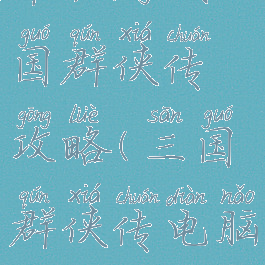 guó qún xiá chuán
国群侠传
gōng lüè sān guó
攻略(三国
qún xiá chuán diàn nǎo
群侠传电脑